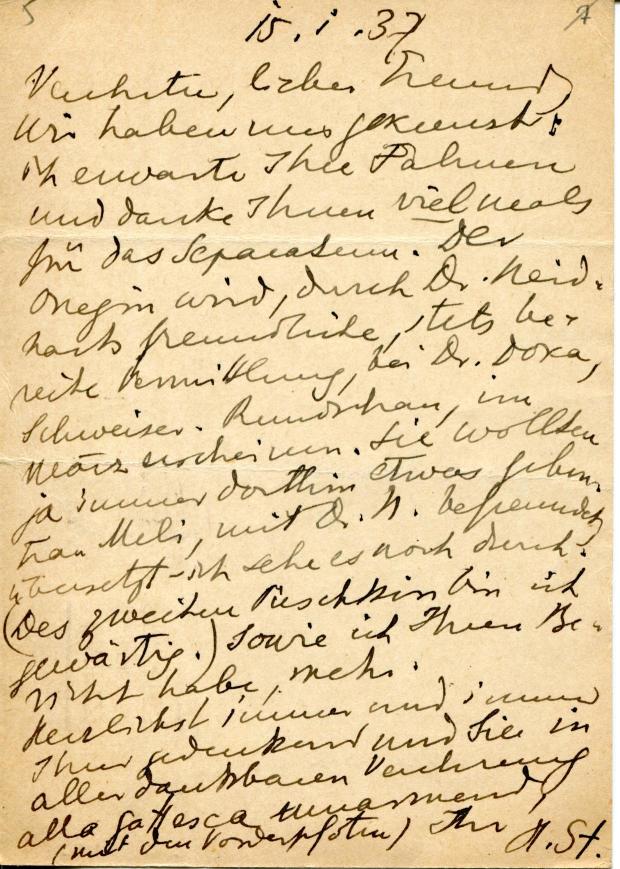 15.1.37
Verehrter, lieber Freund,
wir haben uns gekreuzt:
ich erwarte Ihre Fahnen
und danke Ihnen vielmals
für das Separatum. Der
Onegin wird, durch Dr. Neid-
harts freundliche, stets be-
reite Vermittlung, bei Dr. Doka,
Schweizer. Rundschau, im
März erscheinen. Sie wollten
ja immer dorthin etwas geben.
Frau Meli, mit Dr. N. befreundet,
übersetzt - ich sehe es noch durch.
(Des zweiten Puschkin bin ich
gewärtig.) Sowie ich Ihren Be-
richt habe, mehr.
Herzlichst immer und immer
Ihrer gedenkend und Sie in
aller dankbaren Verehrung
alla gattesca umarmend,
(mit den Vorderpfoten) Ihr H. St.